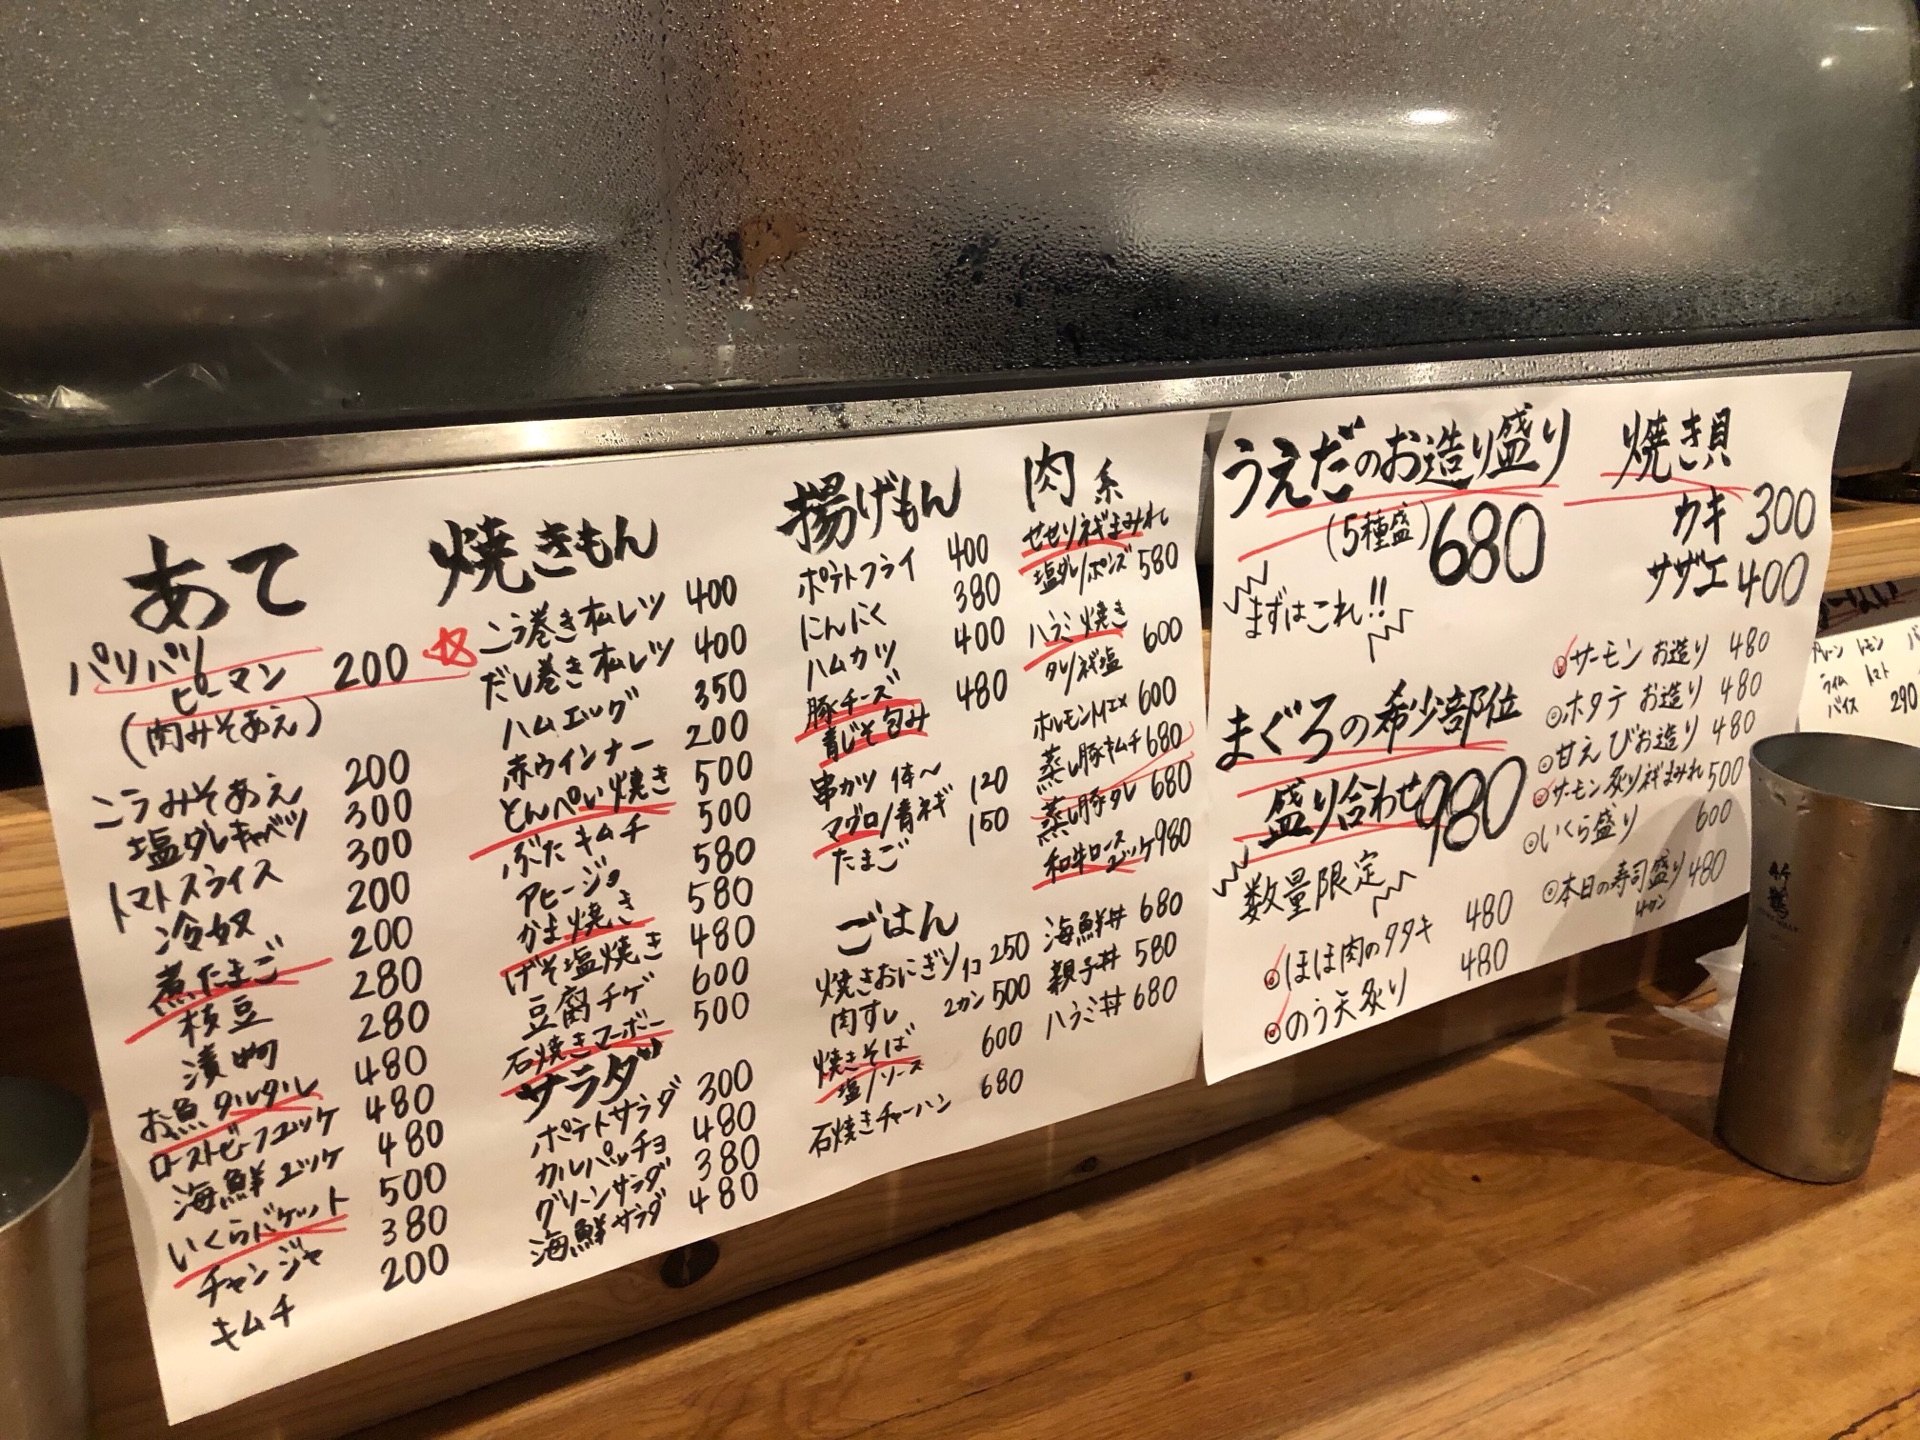 あて
パリパリ
ピーマン 200
(肉みそあえ)
こうみそあえ 200
塩ダレキャベツ 300
トマトスライス 300
冷奴 200
煮たまご 200
枝豆 280
漬物 280
お魚タルタル 480
ローストビーフユッケ 480
海鮮ユッケ 480
いくらバゲット 500
チャンジャ 380
キムチ 200
焼きもん
こう巻き玉レツ 400
だし巻き玉レツ 400
ハムエッグ 350
赤ウインナー 200
とんぺい焼き 500
ぶたキムチ 500
アヒージョ 580
かま焼き 580
げそ塩焼き 480
豆腐チゲ 600
石焼きマーボー 500
サラダ
ポテトサラダ 300
カルパッチョ 480
グリーンサラダ 380
海鮮サラダ 480
揚げもん
ポテトフライ 400
にんにく 380
ハムカツ 400
豚チーズ 480
青じそ包み
串カツ 1本〜 120
マグロ/青ネギ 150
たまご
ごはん
焼きおにぎり 1コ 250
肉すし 2カン 500
焼きそば 600
塩/ソース
石焼きチャーハン 680
肉系
せせりネギまみれ
塩ダレ/ポンズ 580
ハラミ焼き 600
タレ/ネギ塩
ホルモン 600
蒸し豚キムチ 680
蒸し豚タレ 680
和牛ロース
ユッケ 980
海鮮丼 680
親子丼 580
ハラミ丼 680
うえだのお造り盛り
(5種盛) 680
まずはこれ!!
まぐろの希少部位
盛り合わせ 980
数量限定
◎ほほ肉のタタキ 480
◎のう天炙り 480
焼き貝
カキ 300
サザエ 400
◎サーモンお造り 480
◎ホタテお造り 480
◎甘えびお造り 480
◎サーモン炙りネギまみれ 500
◎いくら盛り 600
◎本日の寿司盛り 480
4カン
プレーン レモン
ライム トマト
バイス 290